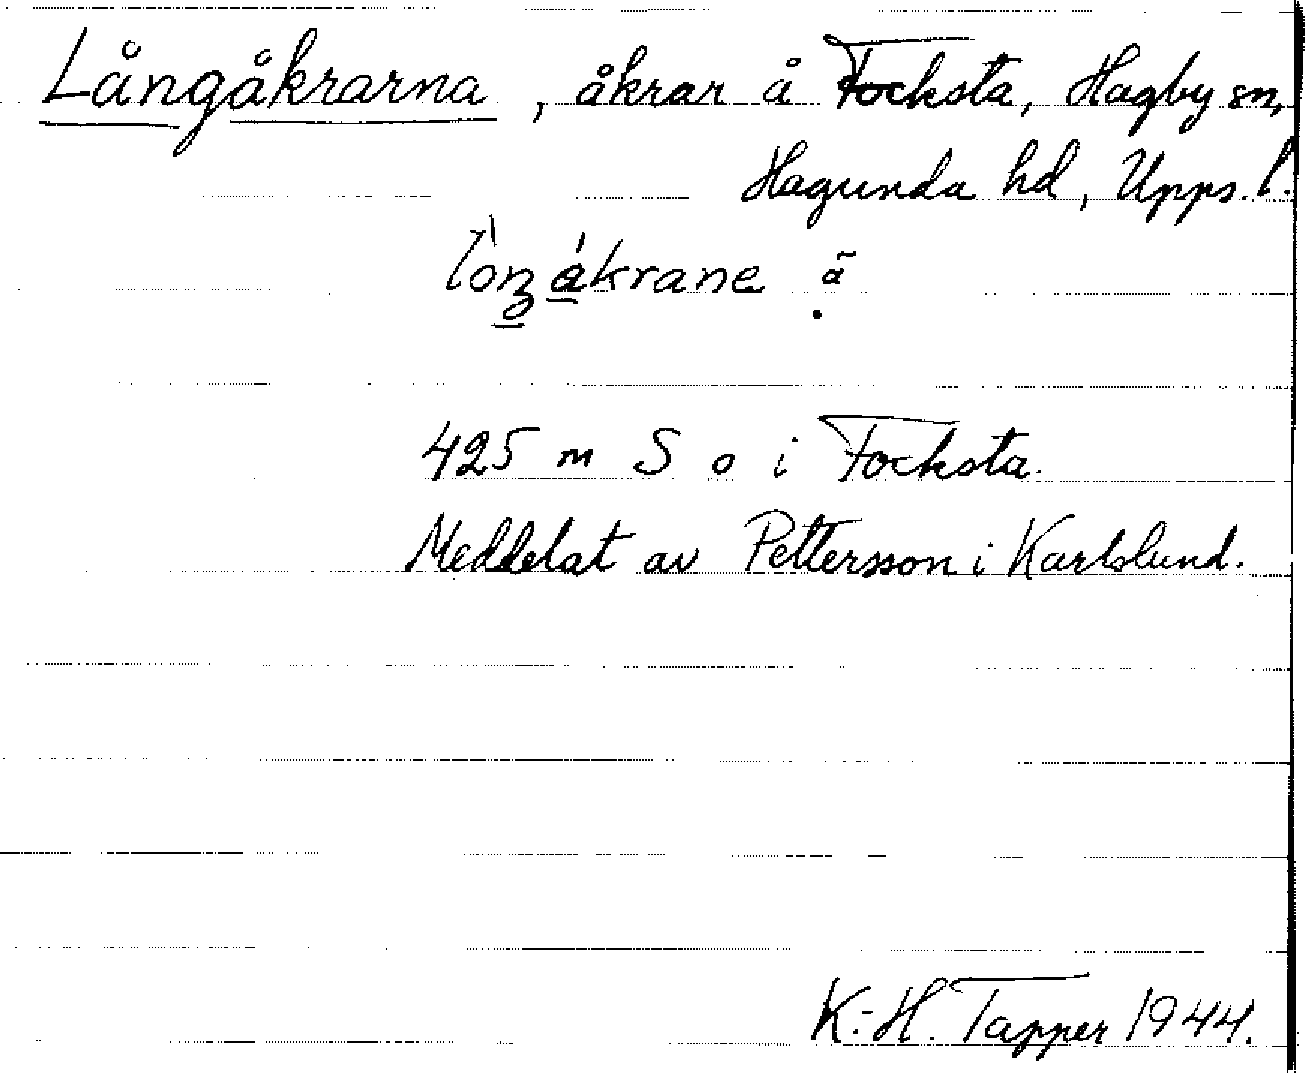 Långåkrarna, åkrar å Focksta, Hagby sn,
Hagunda hd, Upps. l.
425 m S o i Focksta.
Meddelat av Pettersson i Karlslund.
K.-H. Tapper 1944.